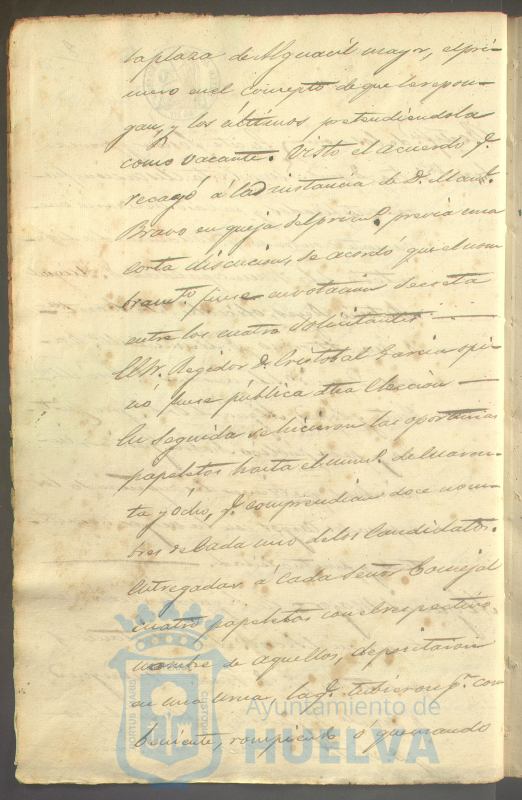 la plaza de Alguacil mayor, el pri-
mero en el concepto de que le repon-
gan, y los últimos pretendiendola
como vacante. Visto el acuerdo q.e
recayó á la instancia de D. Man.l
Bravo en queja del prim.o previa una
corta discucion, se acordó que el nom
bram.to fuese en votacion secreta
entre los cuatro solicitantes
El Sr. Regidor D. Cristobal Garcia opi
nó fuese pública dha eleccion
En seguida se hicieron las oportunas
papeletas hasta el num.o de cuaren-
ta y ócho, q.e comprendian doce nom-
bres de cada uno de los candidatos.
entregadas á cada Señor Concejal
cuatro papeletas con el respectivo
nombre de aquellos, depositaron
en una urna, la q.e tubieron p.r con
beniente, rompiendo ó quemando
Ayuntamiento de
HUELVA
PORTUS MARIS
CUSTODIA